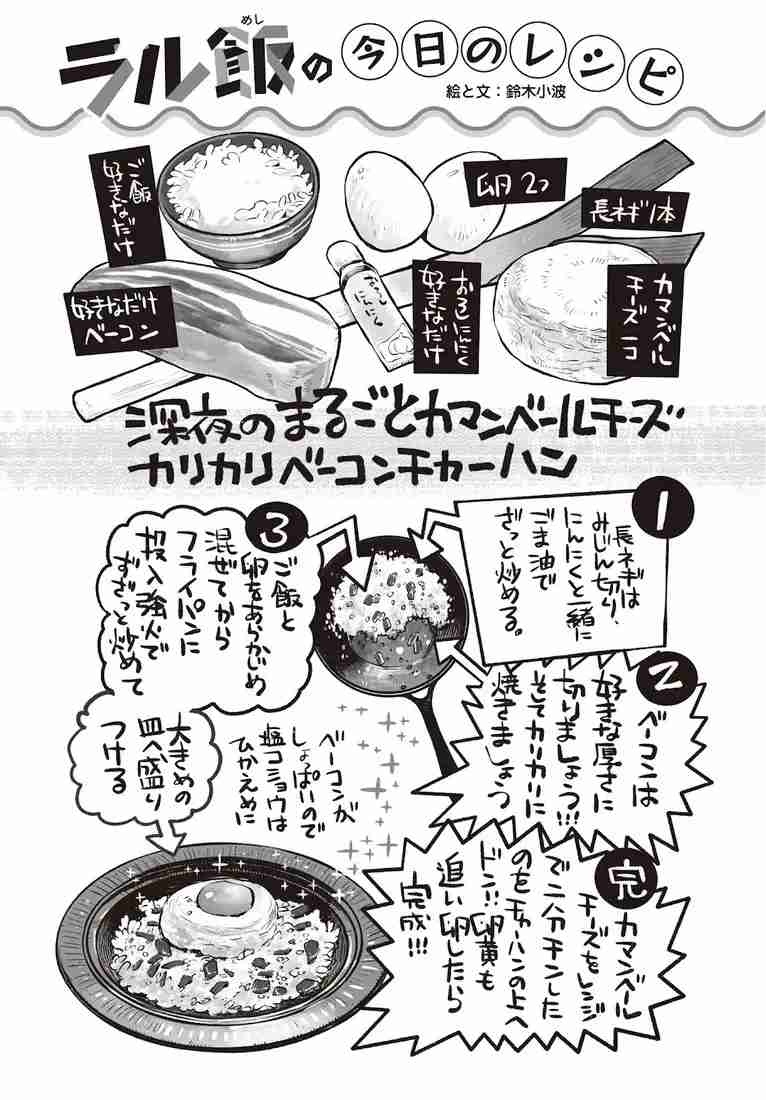 めし
ラル飯の今日のレシピ
絵と文：鈴木小波
ご飯
好きなだけ
卵2つ
長ネギ1本
好きなだけ
ベーコン
おろしにんにく
おろしにんにく
好きなだけ
カマンベール
チーズ一コ
深夜のまるごとカマンベールチーズ
カリカリベーコンチャーハン
1
長ネギは
みじん切り、
にんにくと一緒に
ごま油で
ざっと炒める。
2
ベーコンは
好きな厚さに
切りましょう!!!
そしてカリカリに
焼きましょう
3
ご飯と
卵をあらかじめ
混ぜてから
フライパンに
投入強火で
ずざっと炒めて
ベーコンが
しょっぱいので
塩コショウは
ひかえめに
大きめの
皿へ盛り
つける
完
カマンベール
チーズをレンジ
で二分チンした
のをチャーハンの上へ
ドン!!卵黄も
追い卵したら
完成!!!